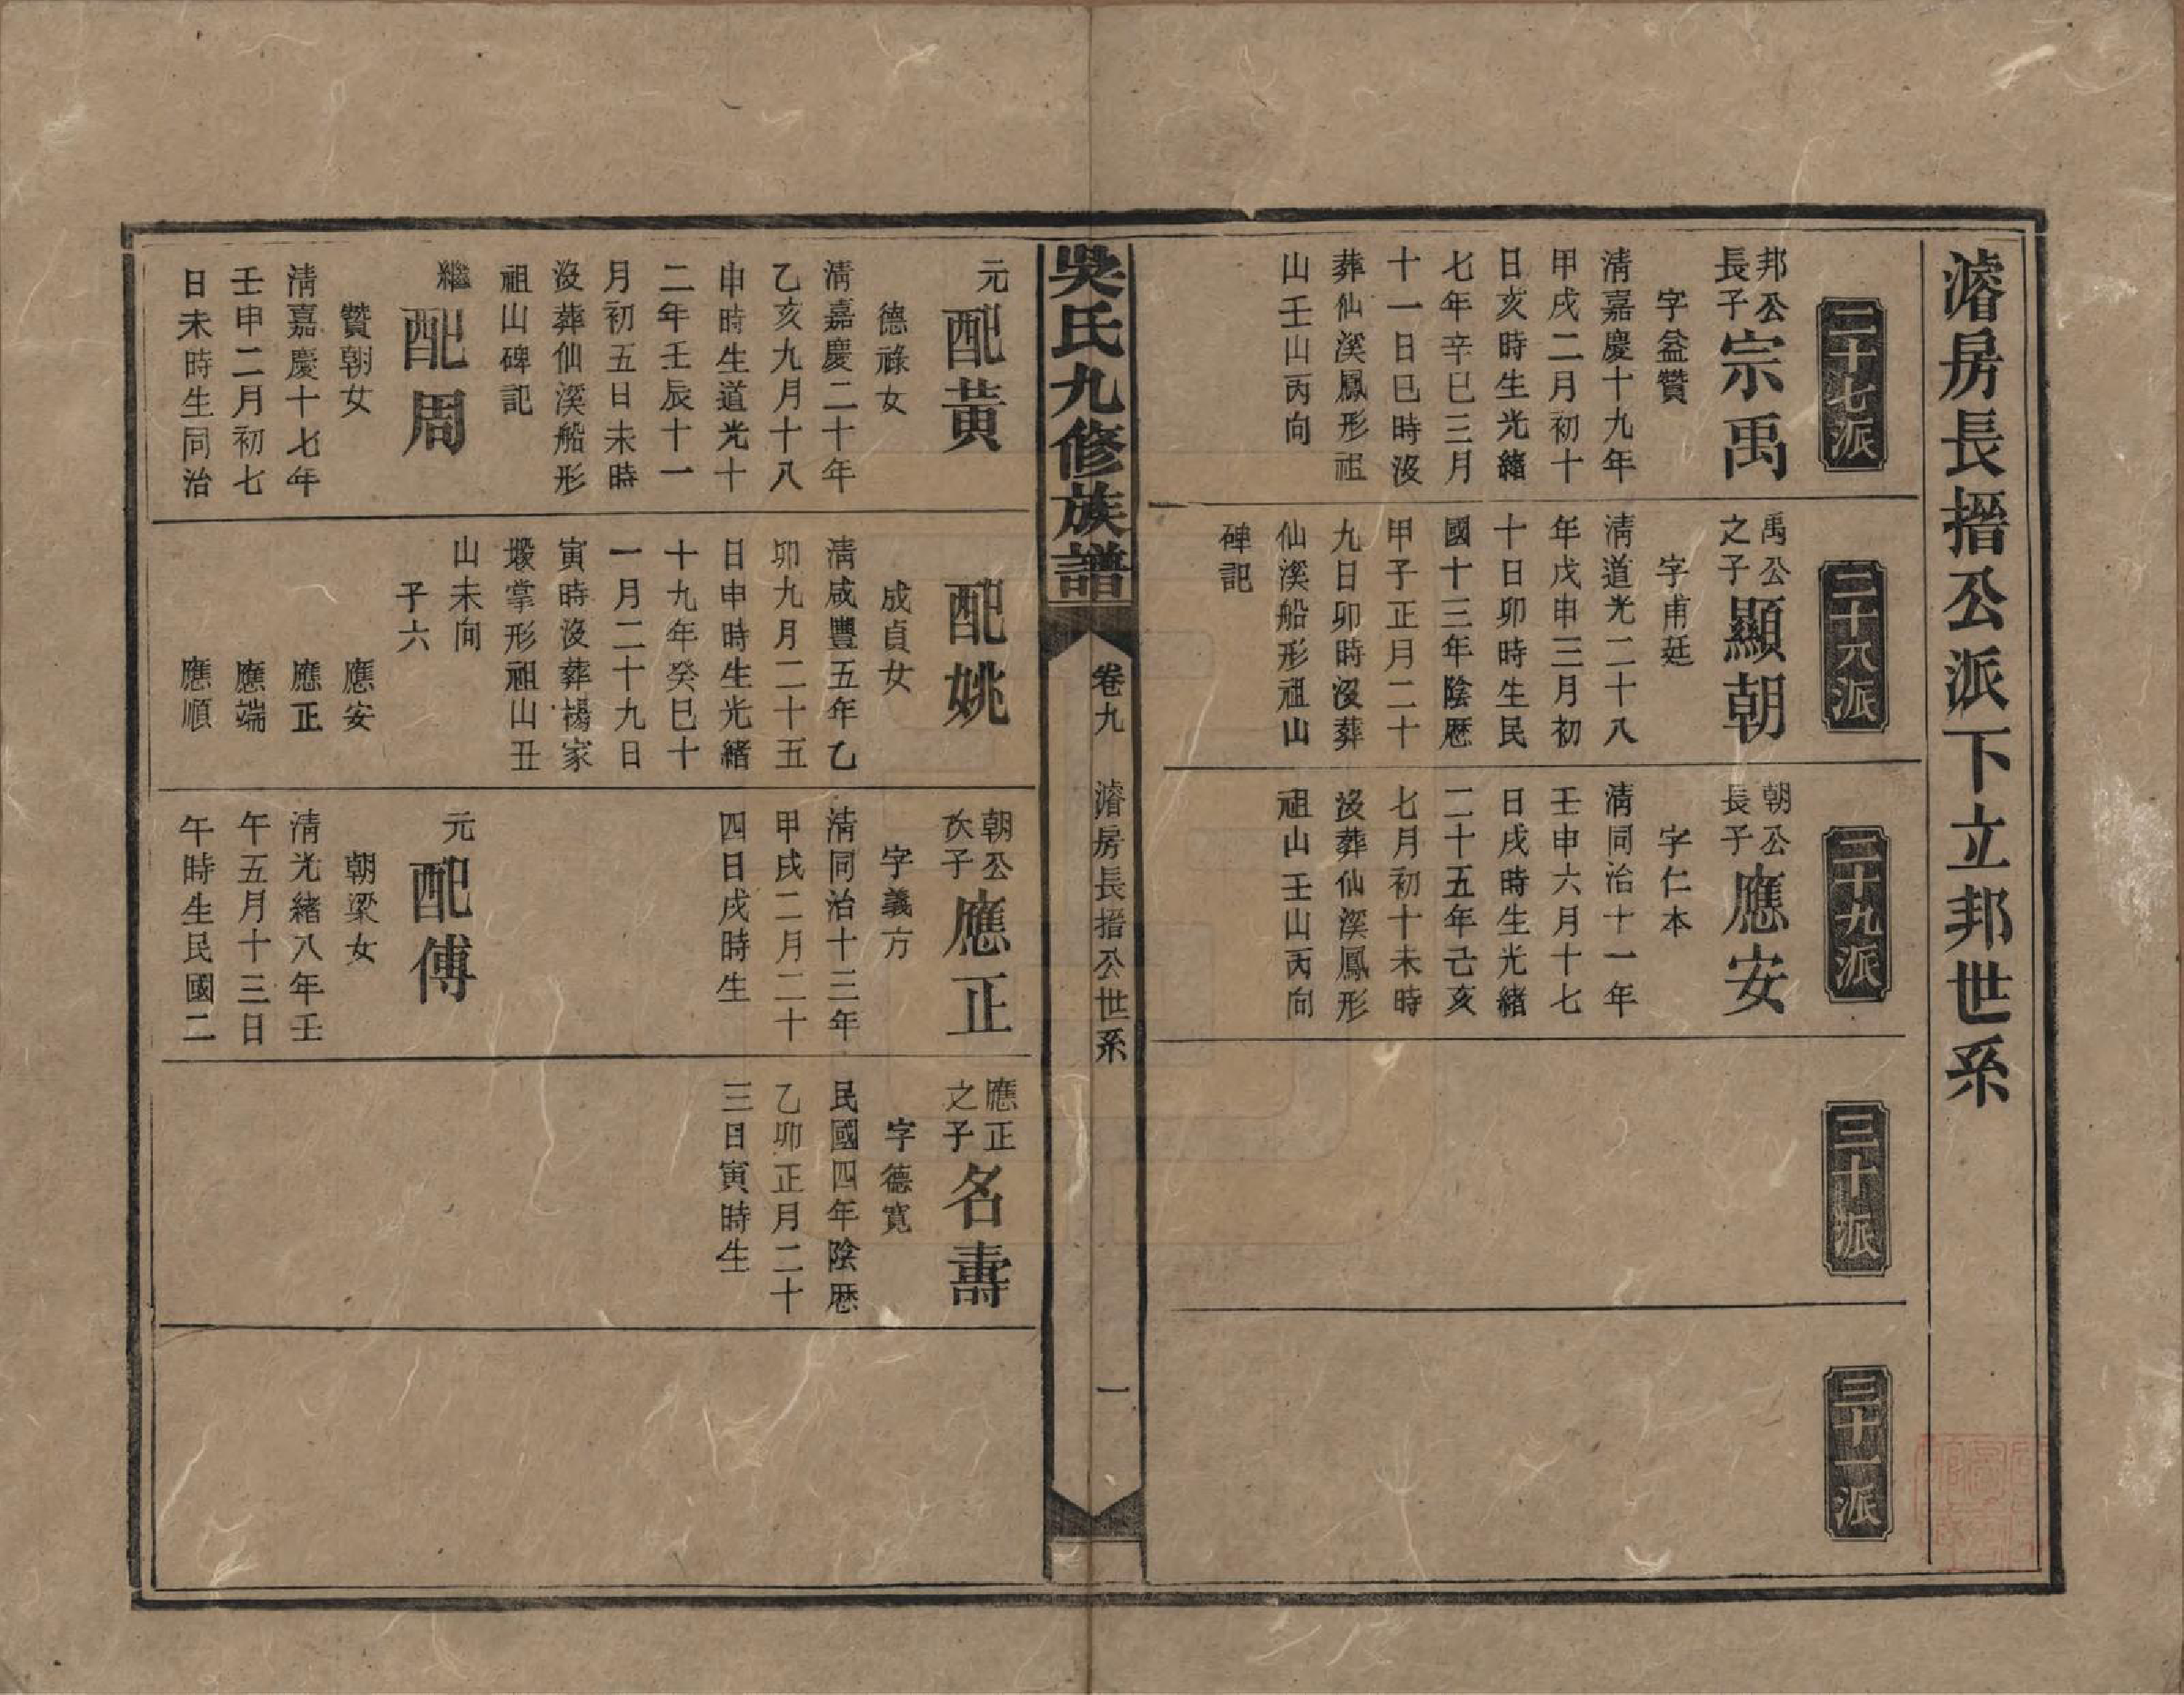 濬房長搢公派下立邦世系
二十七派
邦公
長子
宗禹
字益贊
清嘉慶十九年
甲戌二月初十
日亥時生光緒
七年辛巳三月
十一日巳時沒
葬仙溪鳳形祖
山壬山丙向
二十八派
禹公
之子
顯朝
字甫廷
清道光二十八
年戊申三月初
十日卯時生民
國十三年陰歷
甲子正月二十
九日卯時沒葬
仙溪船形祖山
碑記
二十九派
朝公
長子
應安
字仁本
清同治十一年
壬申六月十七
日戌時生光緒
二十五年己亥
七月初十未時
沒葬仙溪鳳形
祖山壬山丙向
三十派
三十一派
吳氏九修族譜
卷九
濬房長搢公世系
一
元
配黃
德祿女
清嘉慶二十年
乙亥九月十八
申時生道光十
二年壬辰十一
月初五日未時
沒葬仙溪船形
祖山碑記
繼
配周
贊朝女
清嘉慶十七年
壬申二月初七
日未時生同治
配姚
成貞女
清咸豐五年乙
卯九月二十五
日申時生光緒
十九年癸巳十
一月二十九日
寅時沒葬楊家
塅掌形祖山丑
山未向
子六
應安
應正
應端
應順
朝公
次子
應正
字義方
清同治十三年
甲戌二月二十
四日戌時生
元
配傅
朝梁女
清光緒八年壬
午五月十三日
午時生民國二
應正
之子
名壽
字德寬
民國四年陰歷
乙卯正月二十
三日寅時生